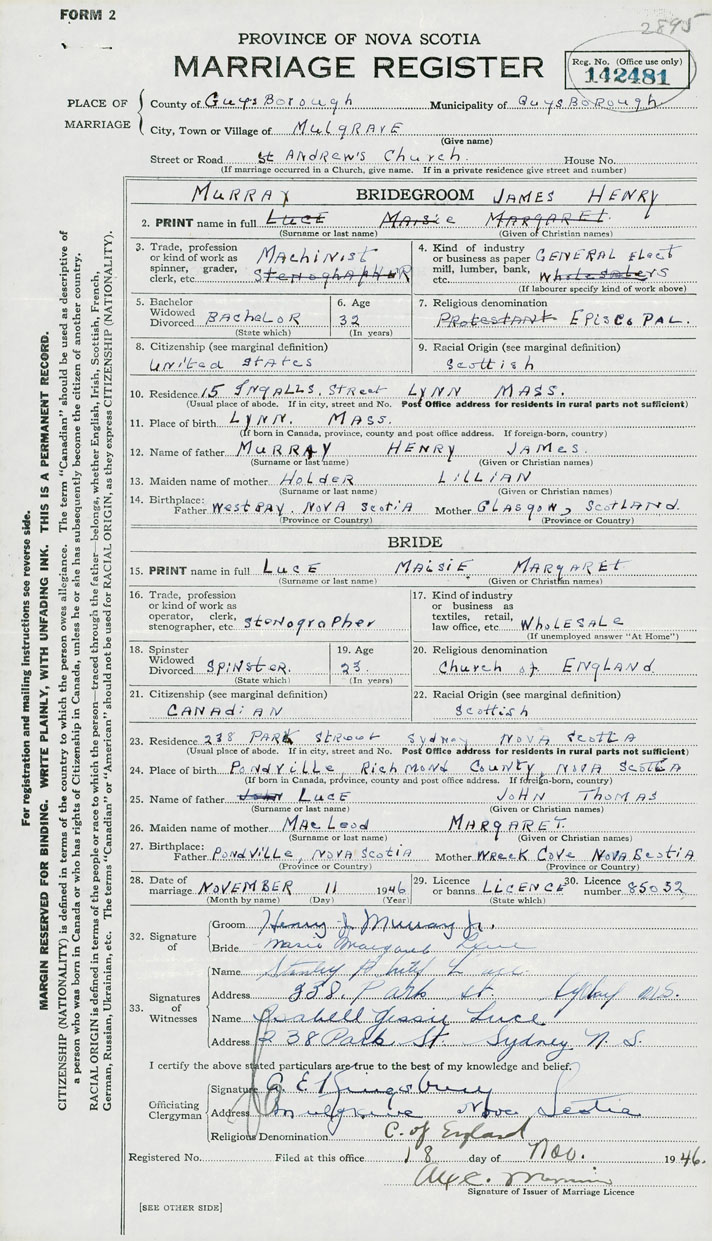 FORM 2
2895
PROVINCE OF NOVA SCOTIA
MARRIAGE REGISTER
Reg. No. (Office use only)
142481
PLACE OF MARRIAGE
County of GuysBorough Municipality of GuysBorough
City, Town or Village of MulgRAVE
(Give name)
Street or Road St ANDREW'S Church. House No.
(If marriage occurred in a Church, give name. If in a private residence give street and number)
MURRAY BRIDEGROOM JAMES HENRY
2. PRINT name in full LUCE MAISIE MARGARET.
(Surname or last name) (Given or Christian names)
3. Trade, profession or kind of work as spinner, grader, clerk, etc. MAchiNist StenogRAPHER
4. Kind of industry or business as paper mill, lumber, bank, etc. GENERAL Elect Wholesalers
(If labourer specify kind of work above)
5. Bachelor Widowed Divorced BAChELOR
(State which)
6. Age 32
(In years)
7. Religious denomination PRotestANt EPIScoPAL.
8. Citizenship (see marginal definition) United States
9. Racial Origin (see marginal definition) Scottish
10. Residence 15 INGALLS. Street LYNN MASS.
(Usual place of abode. If in city, street and No. Post Office address for residents in rural parts not sufficient)
11. Place of birth LYNN. MASS.
(If born in Canada, province, county and post office address. If foreign-born, country)
12. Name of father MURRAY HENRY JAMES.
(Surname or last name) (Given or Christian names)
13. Maiden name of mother HOLDER LILLIAN
(Surname or last name) (Given or Christian names)
14. Birthplace: Father WestBAY. NOVA Scotia Mother GLASgow, Scotland.
(Province or Country) (Province or Country)
BRIDE
15. PRINT name in full LUCE MAISIE MARGARET
(Surname or last name) (Given or Christian names)
16. Trade, profession or kind of work as operator, clerk, stenographer, etc. Stenographer
17. Kind of industry or business as textiles, retail, law office, etc. WholesAle
(If unemployed answer "At Home")
18. Spinster Widowed Divorced SPINSTER.
(State which)
19. Age 23.
(In years)
20. Religious denomination Church of ENGLAND.
21. Citizenship (see marginal definition) CANADIAN
22. Racial Origin (see marginal definition) Scottish
23. Residence 238 PARK Street Sydney NOVA Scotia
(Usual place of abode. If in city, street and No. Post Office address for residents in rural parts not sufficient)
24. Place of birth PONDVILLE RichMOND County NOVA Scotia
(If born in Canada, province, county and post office address. If foreign-born, country)
25. Name of father John LUCE JOHN THOMAS
(Surname or last name) (Given or Christian names)
26. Maiden name of mother MAcLeod MARGARET.
(Surname or last name) (Given or Christian names)
27. Birthplace: Father PONDVILLE, NOVA Scotia Mother WRECK COVE NOVA Scotia
(Province or Country) (Province or Country)
28. Date of marriage NOVEMBER 11 1946
(Month by name) (Day) (Year)
29. Licence or banns LICENCE
(State which)
30. Licence number 85032
32. Signature of
Groom Henry J. Murray Jr.
Bride Margaret Luce
33. Signatures of Witnesses
Name Stanley
Address 238. Park st. Sydney N.S.
Name Isabell Jessie Luce
Address 238 Park St. Sydney N. S.
I certify the above stated particulars are true to the best of my knowledge and belief.
Officiating Clergyman
Signature E Kingsbury
Address Mulgrave Nova Scotia
Religious Denomination C. of England
Registered No. Filed at this office 18 day of Nov. 1946.
Signature of Issuer of Marriage Licence
[SEE OTHER SIDE]
For registration and mailing instructions see reverse side.
MARGIN RESERVED FOR BINDING. WRITE PLAINLY, WITH UNFADING INK. THIS IS A PERMANENT RECORD.
CITIZENSHIP (NATIONALITY) is defined in terms of the country to which the person owes allegiance. The term "Canadian" should be used as descriptive of
a person who was born in Canada or who has rights of Citizenship in Canada, unless he or she has subsequently become the citizen of another country.
RACIAL ORIGIN is defined in terms of the people or race to which the person—traced through the father—belongs, whether English, Irish, Scottish, French,
German, Russian, Ukrainian, etc. The terms "Canadian" or "American" should not be used for RACIAL ORIGIN, as they express CITIZENSHIP (NATIONALITY).